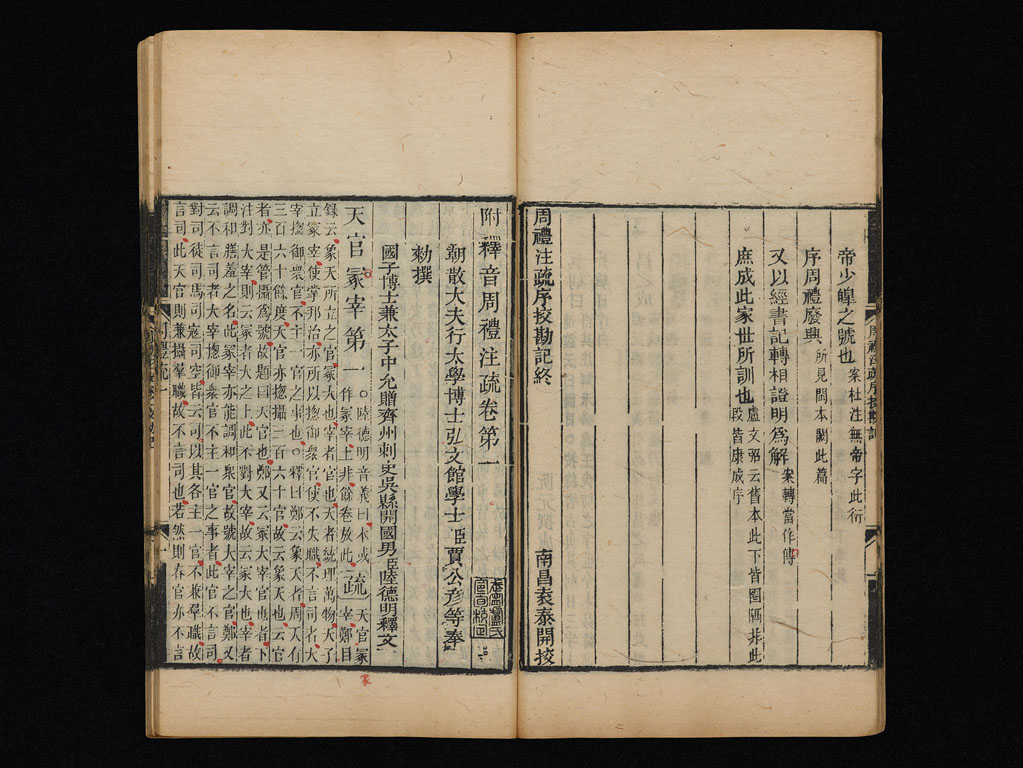 周禮注疏序挍勘記
帝少皥之號也 案杜注無帝字此衍
序周禮廢興 所見閩本闕此篇
又以經書記轉相證明爲解 案轉當作傳
庶成此家世所訓也 盧文弨云舊本此下皆圈隔非此
段皆康成序
周禮注疏序挍勘記終
南昌袁泰開挍
附釋音周禮注疏卷第一
朝散大夫行太學博士弘文館學士臣賈公彦等奉
勑撰
國子博士兼太子中允贈齊州刺史吳縣開國男臣陸德明釋文
天官冢宰第一 ○陸德明音義曰本或作冢宰上非餘卷放此 疏 天官冢宰鄭目
録云象天所立之官冢大也宰者官也天者統理萬物天子
立冢宰使掌邦治亦所以揔御衆官使不失職不言司者大
宰揔御衆官不主一官之事也○釋曰鄭云象天者周天有
三百六十餘度天官亦揔攝三百六十官故云象天也云官
者亦是管攝爲號故題曰天官也鄭又云冢大宰官也者下
注對大宰則云冢者大之上此不對大宰故云冢大也宰者
調和膳羞之名此冢宰亦能調和衆官故號大宰之官鄭又
云不言司者大宰揔御衆官不主一官之事者此官不言司
對司徒司馬司寇司空皆云司以其各主一官不兼羣職故
言司此天官則兼攝羣職故不言司也若然則春官亦不言